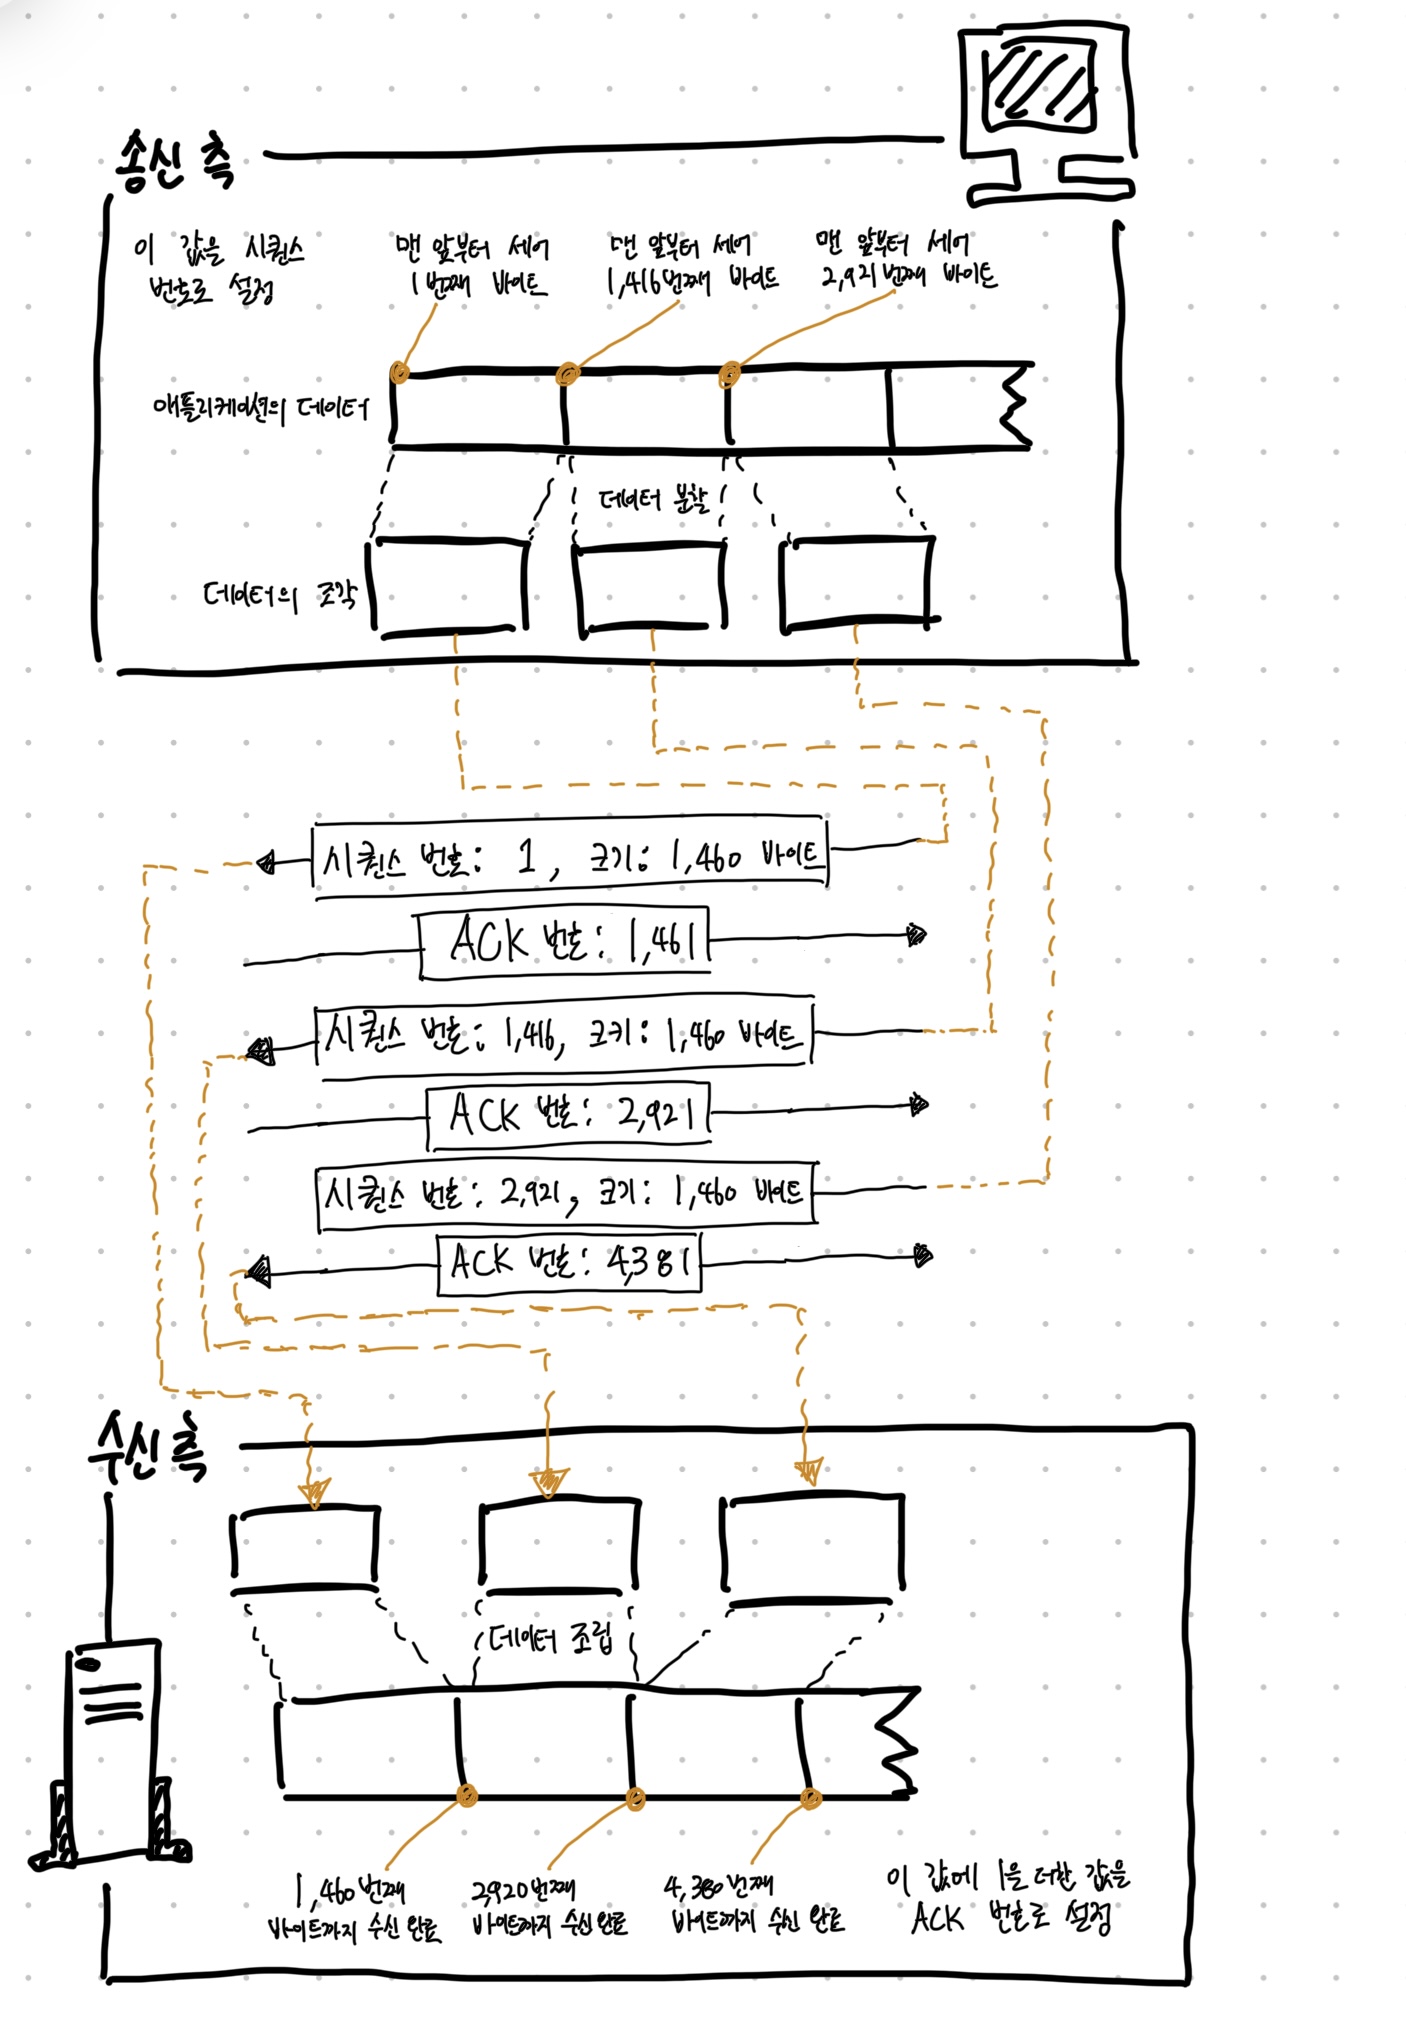 송신 측
이 값을 시퀀스
번호로 설정
맨 앞부터 세어
1번째 바이트
맨 앞부터 세어
1,416번째 바이트
맨 앞부터 세어
2,921번째 바이트
애플리케이션의 데이터
데이터 분할
데이터의 조각
시퀀스 번호: 1, 크기: 1,460 바이트
ACK 번호: 1,461
시퀀스 번호: 1,416, 크기: 1,460 바이트
ACK 번호: 2,921
시퀀스 번호: 2,921, 크기: 1,460 바이트
ACK 번호: 4,381
수신 측
데이터 조립
1,460번째
바이트까지 수신 완료
2,920번째
바이트까지 수신 완료
4,380번째
바이트까지 수신 완료
이 값에 1을 더한 값을
ACK 번호로 설정